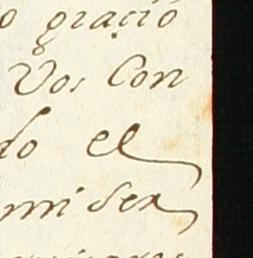 o gracio
Vos Con
do el
mi ser